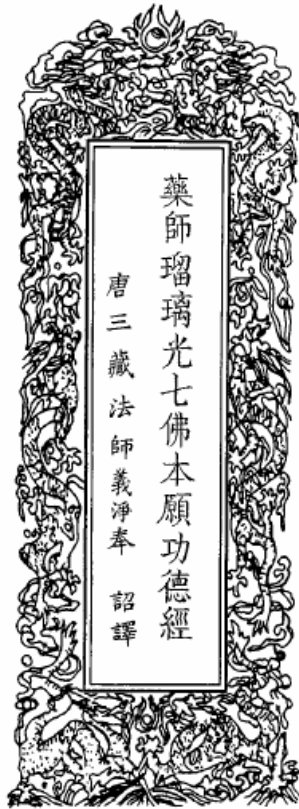 藥師瑠璃光七佛本願功德經
唐三藏法師義淨奉 詔譯